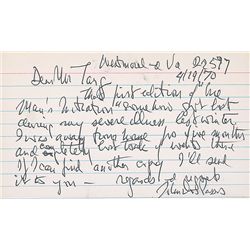 Westmoreland Va 22577
4/19/70
Dear Mr Targ
That first edition of "One
Man's Initiation" somehow got lost
during my severe illness last winter.
I was away from home for five months
and completely lost track of
If I can find another copy I'll send
it to you — regards
John Dos Passos